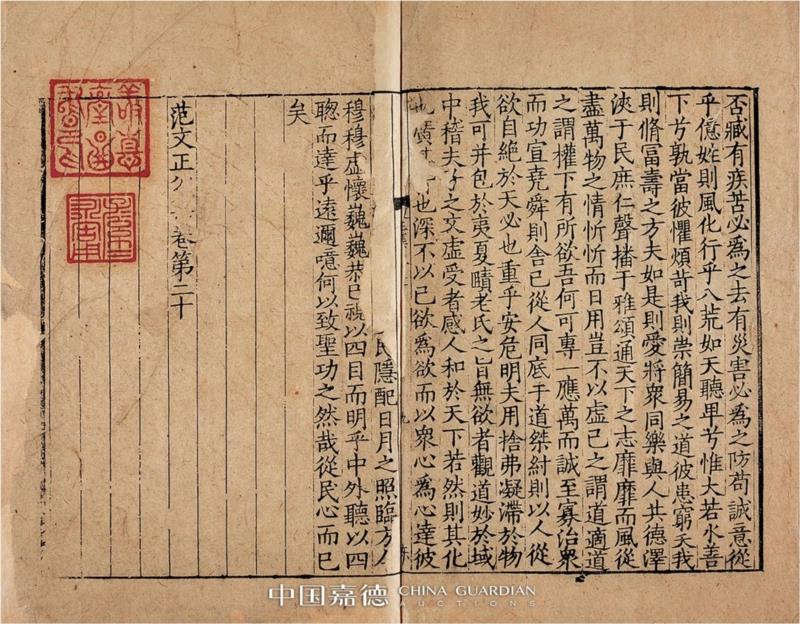 否臧有疾苦必爲之去有災害必爲之防苟誠意從
乎億姓則風化行乎八荒如天聽卑兮惟大若水善
下兮孰當彼懼煩苛我則崇簡易之道彼患窮夭我
則脩富壽之方夫如是則愛將衆同樂與人共德澤
浹于民庶仁聲播于雅頌通天下之志靡靡而風從
盡萬物之情忻忻而日用豈不以虛己之謂道適道
之謂權下有所欲吾何可專一應萬而誠至寡治衆
而功宣堯舜則舍己從人同底于道桀紂則以人從
欲自絕於天必也重乎安危明夫用捨弗凝滯於物
我可并包於夷夏賾老氏之旨無欲者觀道妙於域
中稽夫子之文虛受者感人和於天下若然則其化
也廣也深不以己欲爲欲而以衆心爲心達彼
民隱配日月之照臨方今
穆穆虛懷巍巍恭己視以四目而明乎中外聽以四
聦而達乎遠邇噫何以致聖功之然哉從民心而已
矣
范文正卷第二十
中国嘉德 CHINA GUARDIAN
AUCTIONS